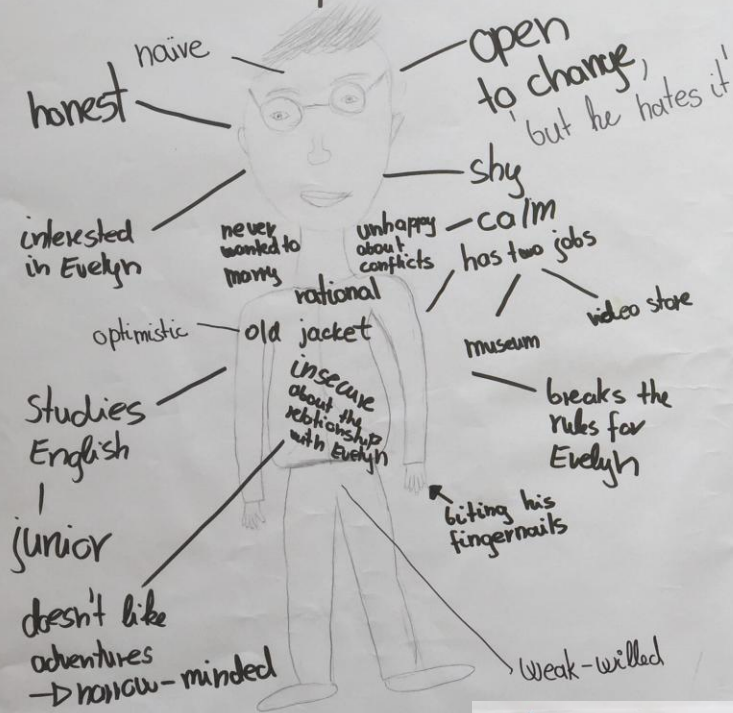 naïve
honest
open
to change,
'but he hates it'
shy
interested
in Evelyn
never
wanted to
marry
unhappy
about
conflicts
calm
has two jobs
museum
video store
rational
optimistic
old jacket
insecure
about the
reltionship
with Evelyn
Studies
English
junior
breaks the
rules for
Evelyn
biting his
fingernails
doesn't like
adventures
→ narrow-minded
weak-willed